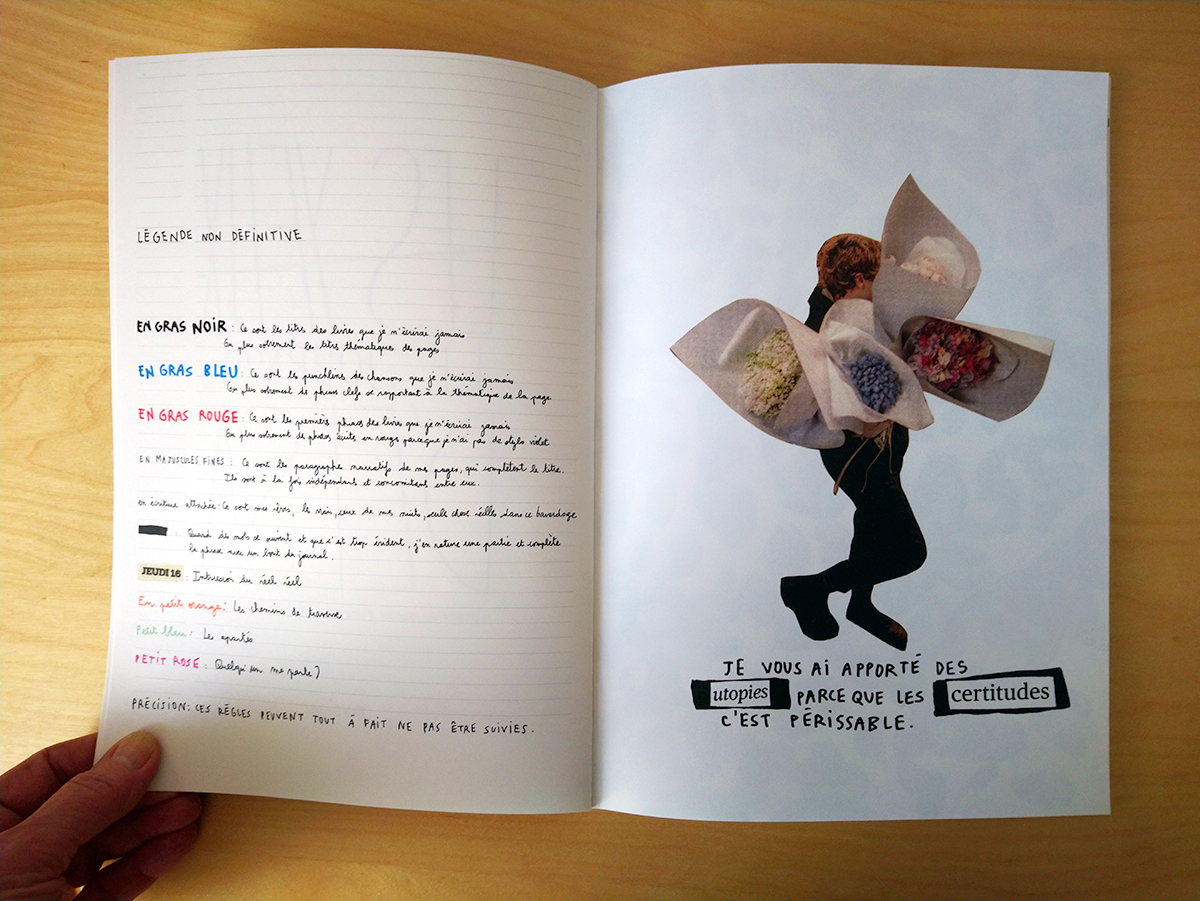 LÉGENDE NON DÉFINITIVE
EN GRAS NOIR : Ce sont les titres des livres que je n'écrirai jamais
En plus sobrement les titres thématiques des pages
EN GRAS BLEU : Ce sont les punchlines des chansons que je n'écrirai jamais
En plus sobrement de phrases clefs se rapportant à la thématique de la page
EN GRAS ROUGE : Ce sont les premières phrases des livres que je n'écrirai jamais
En plus sobrement des phrases écrits en rouge parce que je n'ai pas de stylo violet
EN MAJUSCULES FINES : Ce sont les paragraphes narratifs de mes pages, qui complètent le titre.
Ils sont à la fois indépendants et concomitants entre eux.
en écriture attachée : Ce sont mes rêves, les vrais, ceux de mes nuits, seuls choses réelles dans ce bavardage
: Quand des mots se suivent et que c'est trop évident, j'en rature une partie et complète
la phrase avec un bout du journal.
JEUDI 16 : Intrusion du réel réel
En petit orange : Les chemins de traverse
Petit bleu : Les apartés
PETIT ROSE : Quelqu'un me parle ?
PRÉCISION : CES RÈGLES PEUVENT TOUT À FAIT NE PAS ÊTRE SUIVIES.
JE VOUS AI APPORTÉ DES
utopies PARCE QUE LES certitudes
C'EST PÉRISSABLE.